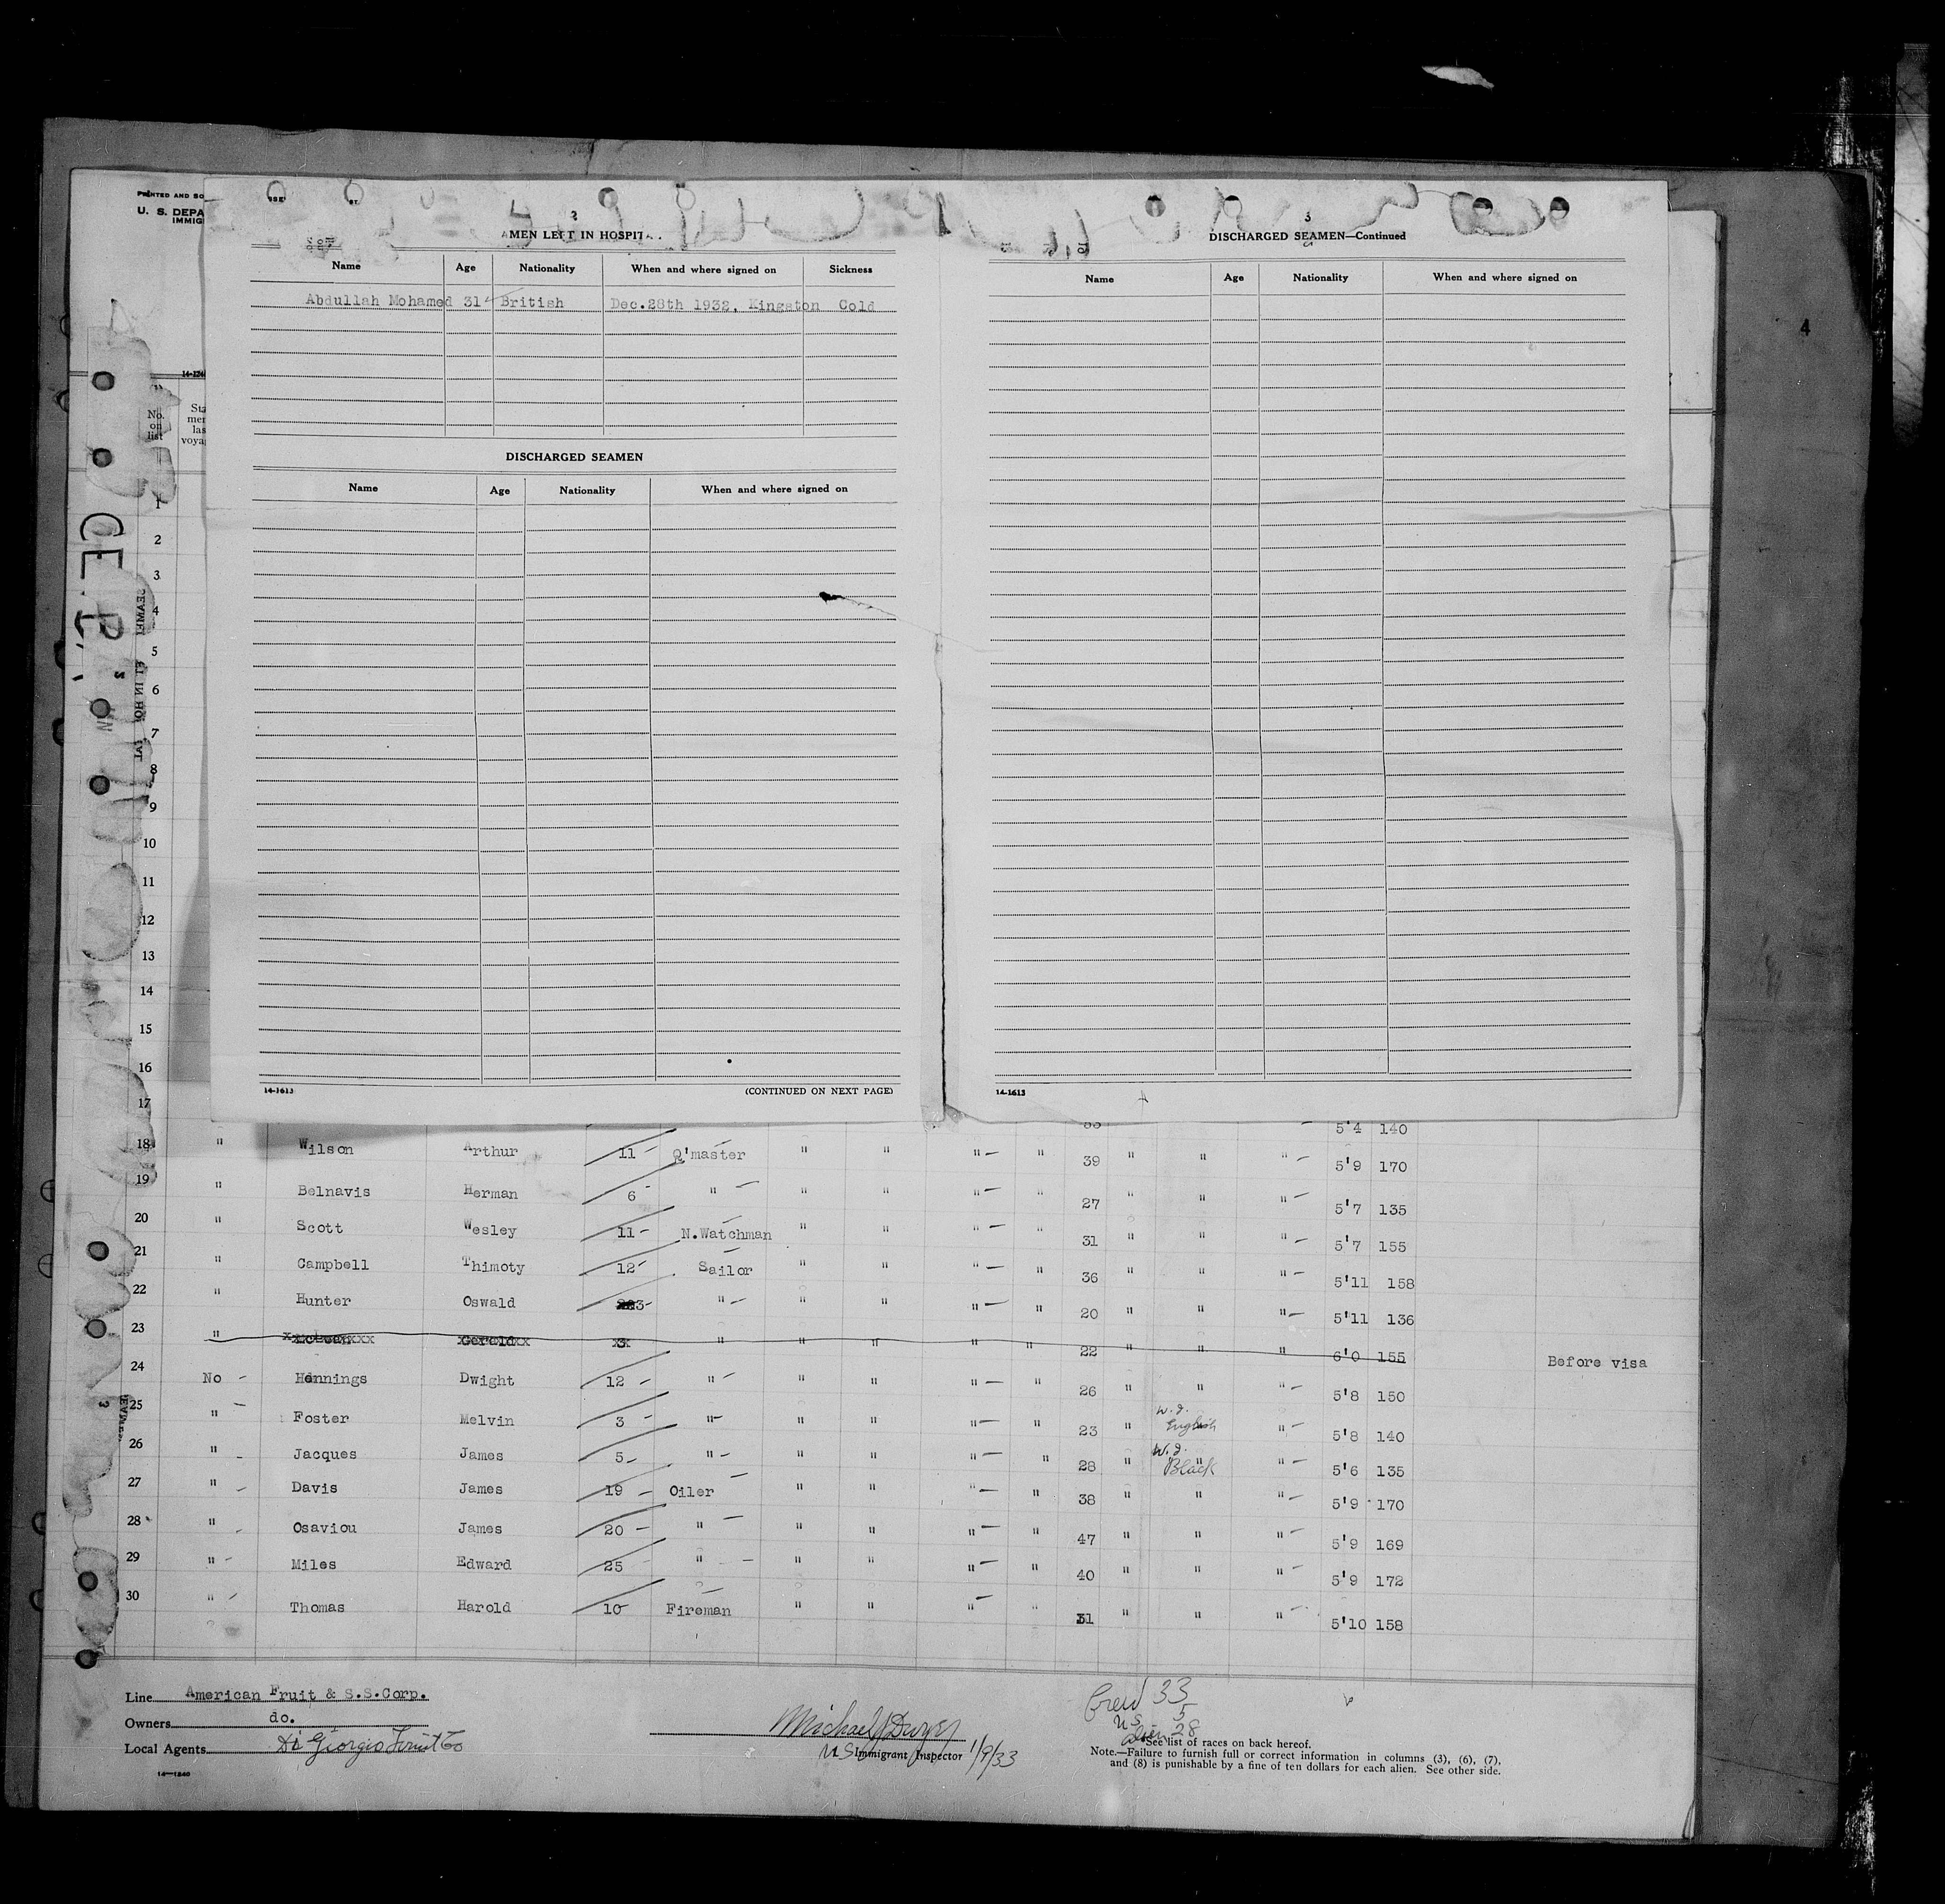 PRINTED AND SO
U. S. DEPA
IMMIG
2
AMEN LEFT IN HOSPITA
Name Age Nationality When and where signed on Sickness
Abdullah Mohamed 31 British Dec.28th 1932, Kingston Cold
DISCHARGED SEAMEN
Name Age Nationality When and where signed on
14-1613 (CONTINUED ON NEXT PAGE)
3
DISCHARGED SEAMEN—Continued
Name Age Nationality When and where signed on
14-1613
4
14-124
No. on list
Sta
men
las
voya
1
2
3
4
5
6
7
8
9
10
11
12
13
14
15
16
17
5'4 140
18 " Wilson Arthur 11 Q'master " " " — " 39 " " " — 5'9 170
19 " Belnavis Herman 6 " — " " " — " 27 " " " — 5'7 135
20 " Scott Wesley 11 - N.Watchman " " " — " 31 " " " — 5'7 155
21 " Campbell Thimoty 12 Sailor " " " — " 36 " " " — 5'11 158
22 " Hunter Oswald 3- " - " " " — " 20 " " " — 5'11 136
23 " Gerald 3 " " " " " 22 " " " 6'0 155 Before visa
24 No - Hennings Dwight 12 - " - " " " — " 26 " " " — 5'8 150
25 " Foster Melvin 3 - " - " " " — " 23 " W.I. English " — 5'8 140
26 " - Jacques James 5 - " - " " " — " 28 " W.I. Black " — 5'6 135
27 " - Davis James 19 - Oiler " " " — " 38 " " " — 5'9 170
28 " - Osaviou James 20 - " — " " " — " 47 " " " — 5'9 169
29 " - Miles Edward 25 - " — " " " — " 40 " " " — 5'9 172
30 " - Thomas Harold 10 Fireman " " " — " 31 " " " — 5'10 158
Line American Fruit & S.S.Corp.
Owners do.
Local Agents Di Giorgio Fruit Co
14—1240
Michael J Dwyer
US Immigrant Inspector 1/9/33
Crew 33
US 5
Alien 28
*See list of races on back hereof.
Note.—Failure to furnish full or correct information in columns (3), (6), (7),
and (8) is punishable by a fine of ten dollars for each alien. See other side.